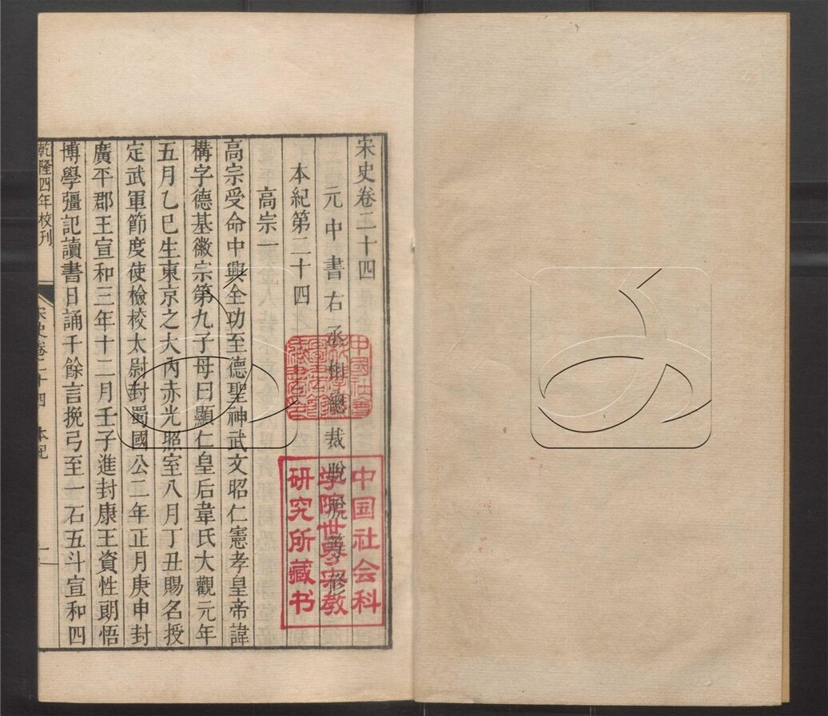 宋史卷二十四
元中書右丞相總裁脫脫等修
本紀第二十四
高宗一
高宗受命中興全功至德聖神武文昭仁憲孝皇帝諱
構字德基徽宗第九子母曰顯仁皇后韋氏大觀元年
五月乙巳生東京之大內赤光照室八月丁丑賜名授
定武軍節度使檢校太尉封蜀國公二年正月庚申封
廣平郡王宣和三年十二月壬子進封康王資性朗悟
博學彊記讀書日誦千餘言挽弓至一石五斗宣和四
乾隆四年校刊
宋史卷二十四 本紀 一
中国社会科
学院世界宗教
研究所藏书